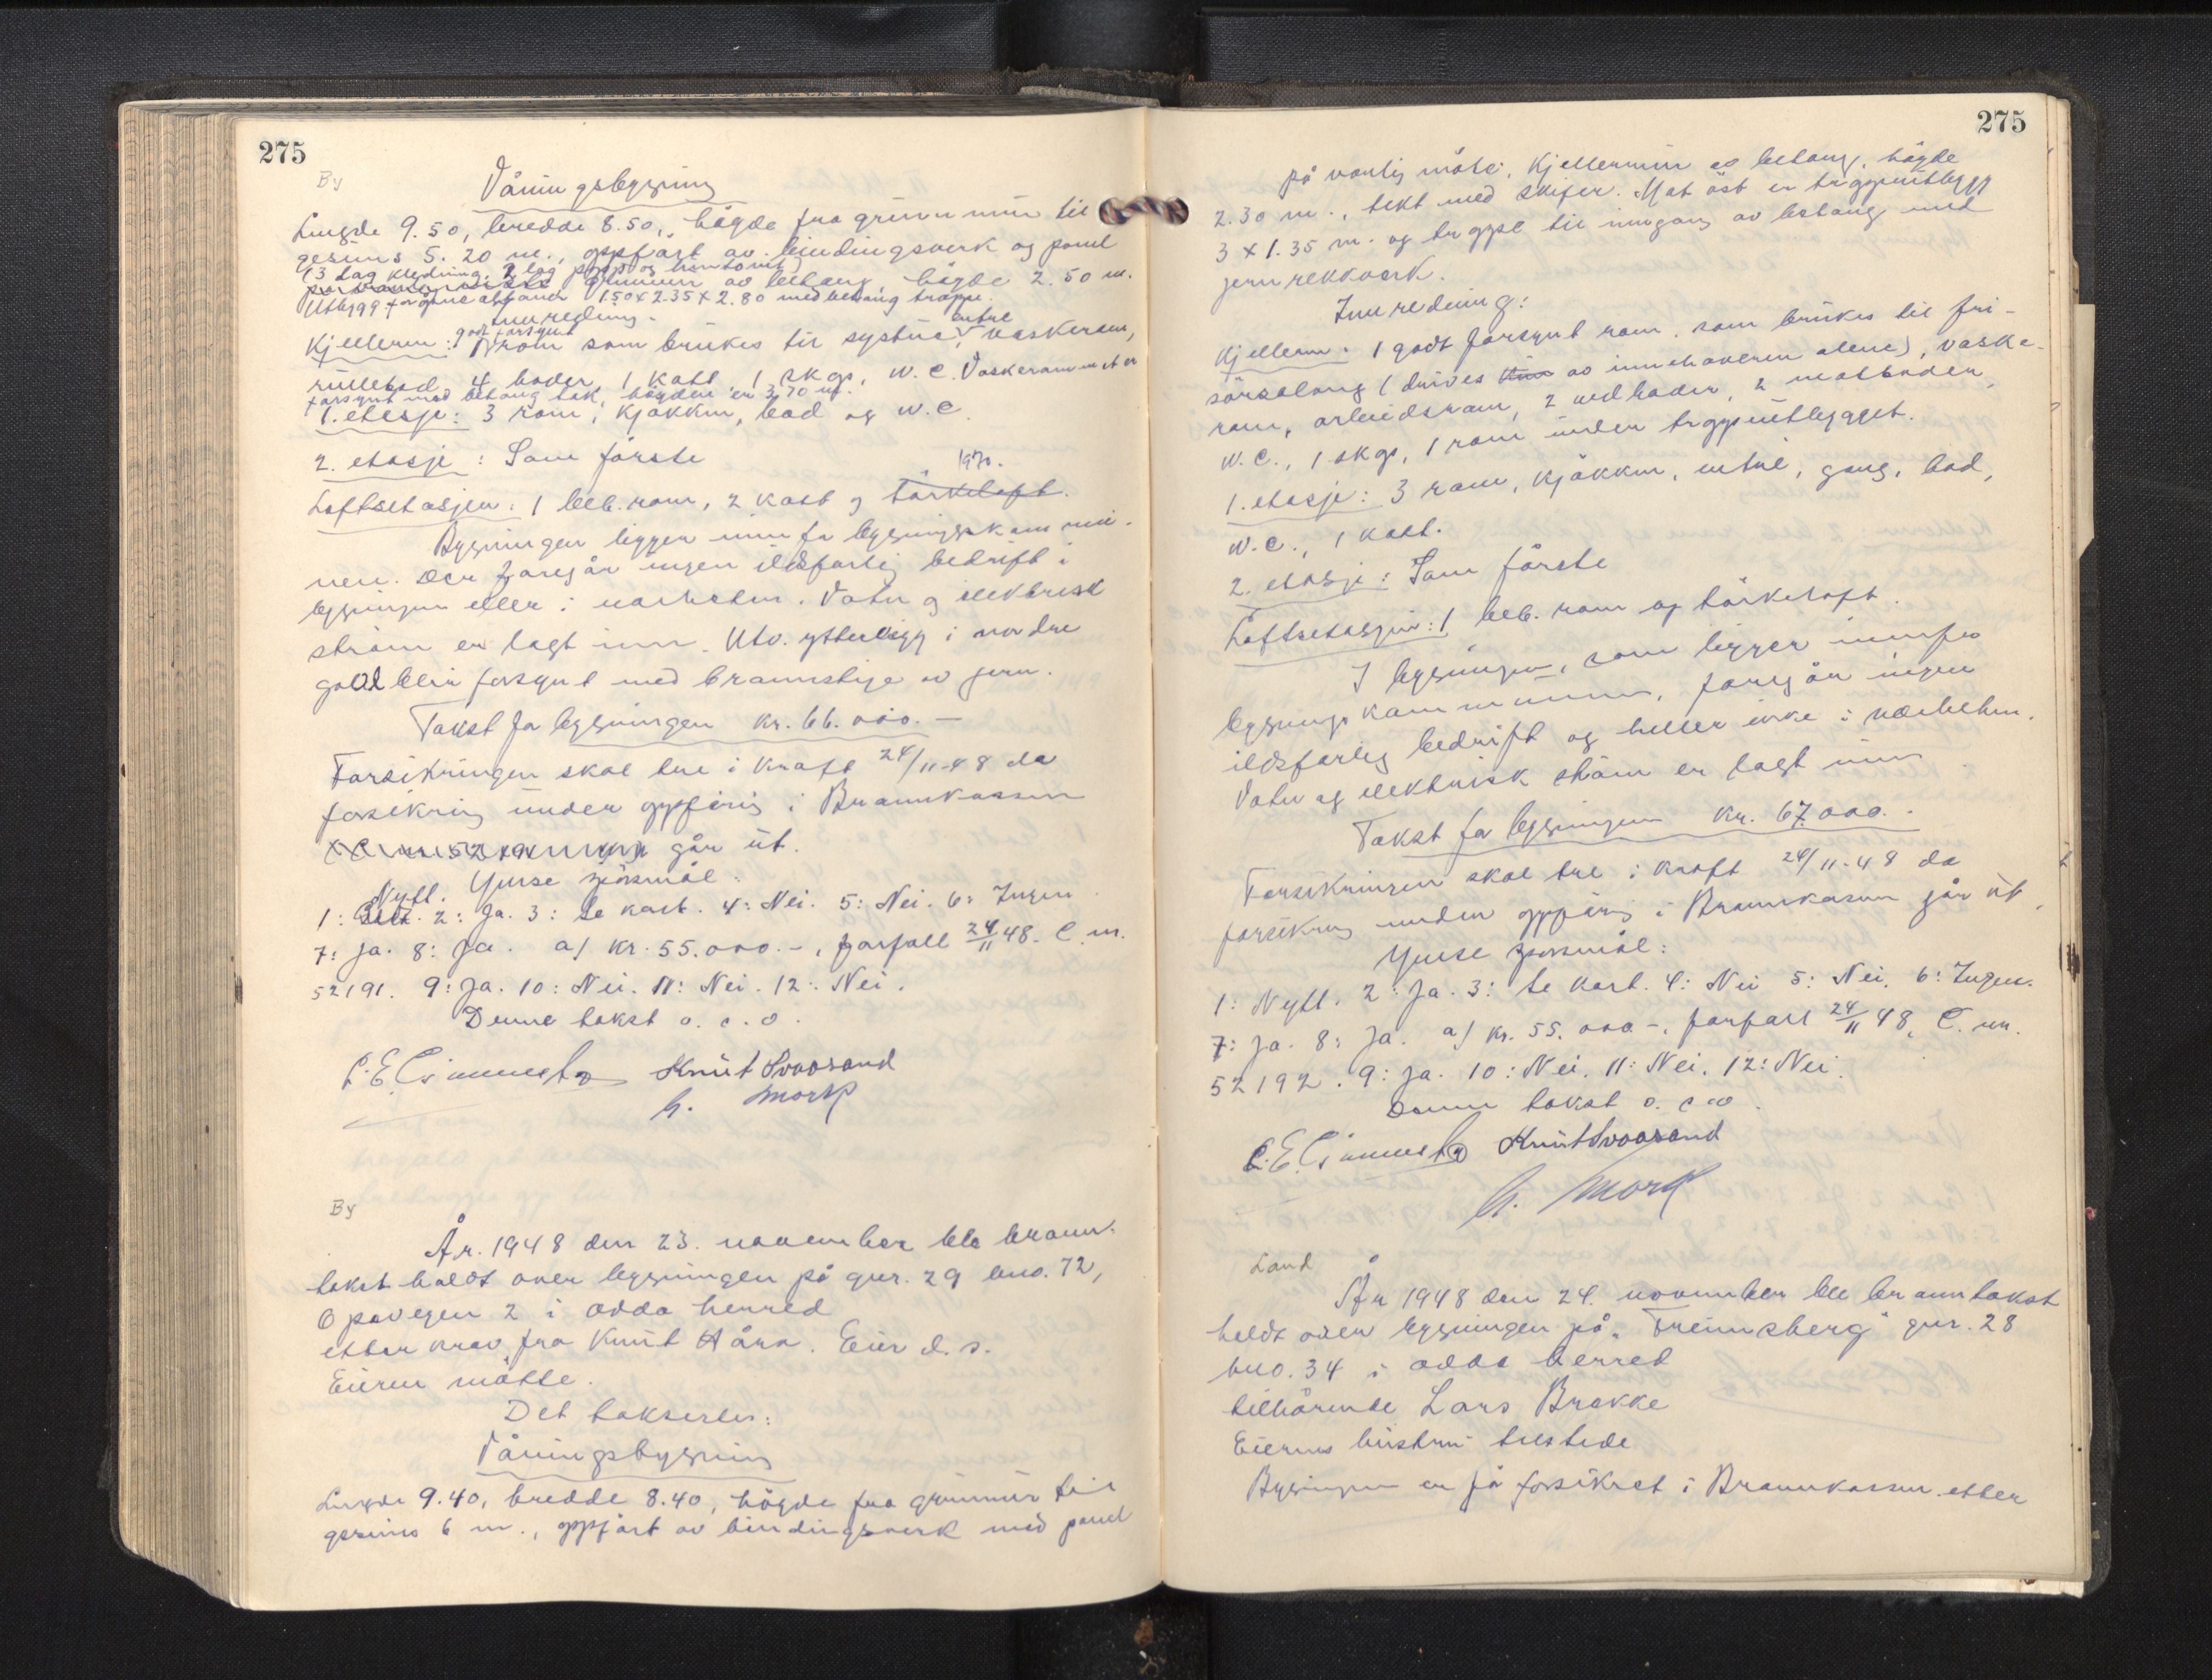 275
By
Våningsbygning
Lengde 9.50, bredde 8.50, högde fra grunnmur til
gesims 5.20 m., oppfört av bindingsverk og panel
(3 lag kledning, 2 lag papp og
grunnmur av betong, högde 2.50 m.
Utbygg for 1.50 x 2.35 x 2.80 med betong trappe.
Innredning.
godt forsynt entre
Kjelleren: 1 rom som brukes til systue, vaskerom,
rullebod, 4 boder, 1 kott, 1 skgs, W.C. Vaskerommet er
forsynt med betong tak, högden er 3.70 m.
1. etasje: 3 rom, kjökken, bad og W.C.
2. etasje: Som förste
1970.
Loftsetasjen: 1 beb. rom, 2 kott og törkeloft.
Bygningen ligger innen for bygningskommu-
nen. Der foregår ingen ildsfarlig bedrift i
bygningen eller i nærheten. Vatn og elektrisk
ström er lagt inn. Utv. i nordre
gavl blir forsynt med brannstige av jern.
Takst for bygningen kr. 66.000.—
Forsikringen skal tre i kraft 24/11-48 da
forsikring under oppföring i Brannkassen
går ut.
Ymse spörsmål:
1: Nytt. 2: Ja. 3: Se kart. 4: Nei. 5: Nei. 6: Ingen
7: Ja. 8: Ja. a) kr. 55.000.-, forfall 24/11 48. C. nr.
52191. 9: Ja. 10: Nei. 11: Nei. 12: Nei.
Denne takst o. s. o.
Knut Svoosand
H. Mork
By
År 1948 den 23. november ble brann-
takst holdt over bygningen på gnr. 29 bno. 72,
Opovegen 2 i Odda herred
etter krav fra Knut Håra. Eier d. s.
Eieren mötte.
Det takserter:
Våningsbygning
Lengde 9.40, bredde 8.40, högde fra grunnmur til
gesims 6 m., oppfört av bindingsverk med panel
275
på vanlig måte. Kjellermur av betong, högde
2.30 m., tekt med skifer. Mot öst er trappeutbygg
3 x 1.35 m. og trappe til inngang av betong med
jernrekkverk.
Innredning:
Kjelleren: 1 godt forsynt rom, som brukes til fri-
sörsalong (drives av innehaveren alene), vaske-
rom, arbeidsrom, 2 vedboder, 2 matboder,
W.C., 1 skgs, 1 rom under trappeutbygget.
1. etasje: 3 rom, kjökken, entre, gang, bad,
W.C., 1 kott.
2. etasje: Som förste
Loftsetasjen: 1 beb. rom og törkeloft.
I bygningen, som ligger innafor
bygningskommunen, foregår ingen
ildsfarlig bedrift og heller ikke i nærheten.
Vatn og elektrisk ström er lagt inn
Takst for bygningen kr. 67.000.-
Forsikringen skal tre i kraft 24/11-48 da
forsikring under oppföring i Brannkassen går ut.
Ymse spörsmål:
1: Nytt. 2: Ja. 3: Se kart. 4: Nei 5: Nei. 6: Ingen.
7: Ja. 8: Ja. a) kr. 55.000-, forfall 24/11 48, C. nr.
52192. 9: Ja. 10: Nei. 11: Nei. 12: Nei.
Denne takst o. s. o.
Knut Svoosand
H. Mork
Land
År 1948 den 24. november ble branntakst
holdt over bygningen på "Freimsberg" gnr. 28
bno. 34 i Odda herred
tilhörende Lars Brekke
Eierens hustru tilstede
Bygningen er för forsikret i Brannkassen etter